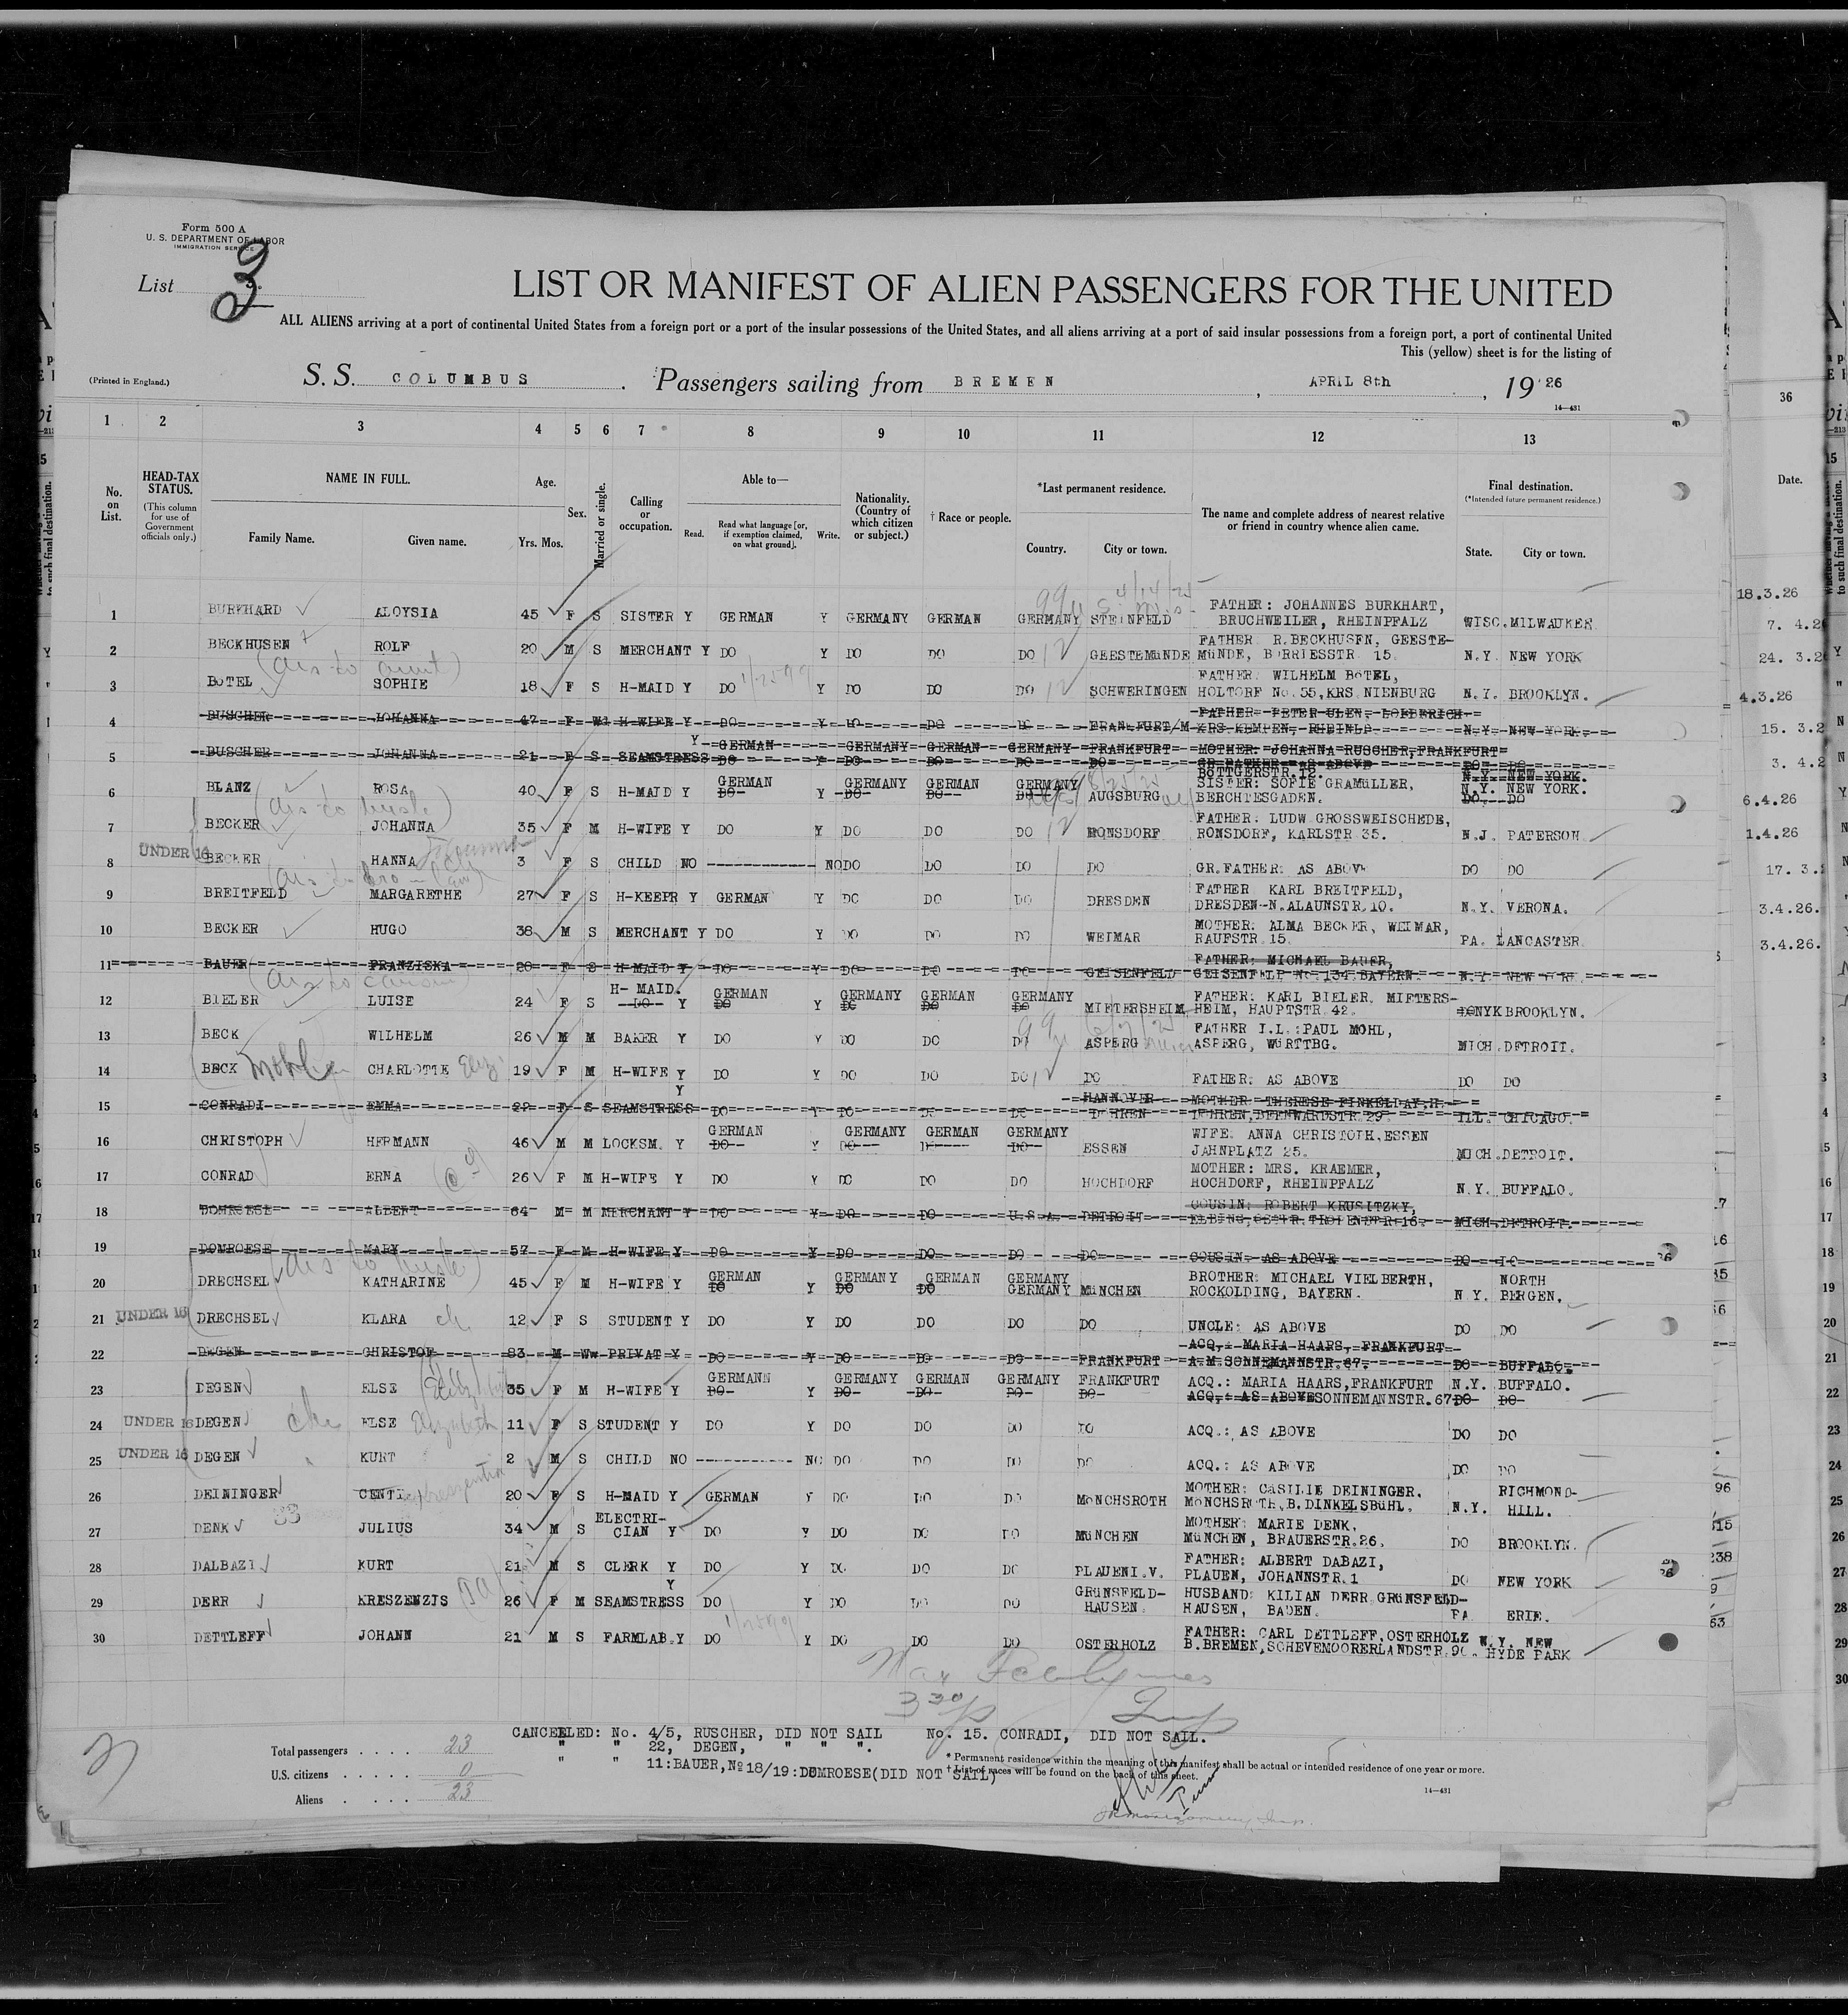 Form 500 A
U. S. DEPARTMENT OF LABOR
IMMIGRATION SERVICE
List 3
LIST OR MANIFEST OF ALIEN PASSENGERS FOR THE UNITED
ALL ALIENS arriving at a port of continental United States from a foreign port or a port of the insular possessions of the United States, and all aliens arriving at a port of said insular possessions from a foreign port, a port of continental United
This (yellow) sheet is for the listing of
(Printed in England.)
S. S. COLUMBUS. Passengers sailing from BREMEN, APRIL 8th, 19 26
14—431
1 2 3 4 5 6 7 8 9 10 11 12 13 36
No. on List.
HEAD-TAX STATUS.
(This column for use of Government officials only.)
NAME IN FULL.
Family Name. Given name.
Age.
Yrs. Mos.
Sex.
Married or single.
Calling or occupation.
Able to—
Read. Read what language [or, if exemption claimed, on what ground]. Write.
Nationality. (Country of which citizen or subject.)
† Race or people.
*Last permanent residence.
Country. City or town.
The name and complete address of nearest relative or friend in country whence alien came.
Final destination.
(*Intended future permanent residence.)
State. City or town.
Date.
1 BURKHARD ALOYSIA 45 F S SISTER Y GERMAN Y GERMANY GERMAN GERMANY STEINFELD FATHER: JOHANNES BURKHART, BRUCHWEILER, RHEINPFALZ WISC. MILWAUKEE 18.3.26
2 BECKHUSEN ROLF 20 M S MERCHANT Y DO Y DO DO DO GEESTEMüNDE FATHER R.BECKHUSEN, GEESTE- MüNDE, BORRIESSTR. 15. N.Y. NEW YORK
3 BöTEL SOPHIE 18 F S H-MAID Y DO Y DO DO DO SCHWERINGEN FATHER: WILHELM BöTEL, HOLTORF No.55,KRS.NIENBURG N.Y. BROOKLYN.
4 BUSCHER JOHANNA 47 F Wd H-WIFE Y DO Y DO DO DO FRANKFURT/M FATHER: PETER ULEN, LOBBERICH KRS.KEMPEN, RHEINLD. N.Y. NEW YORK.
5 BUSCHER JOHANNA 21 F S SEAMSTRESS Y GERMAN Y GERMANY GERMAN GERMANY FRANKFURT MOTHER: JOHANNA RUSCHER, FRANKFURT
GR.FATHER: AS ABOVE DO DO
BöTTGERSTR.12. N.Y. NEW YORK.
6 BLANZ ROSA 40 F S H-MAID Y GERMAN Y GERMANY GERMAN GERMANY AUGSBURG SISTER: SOFIE GRAMüLLER, BERCHTESGADEN. N.Y. NEW YORK.
7 BECKER JOHANNA 35 F M H-WIFE Y DO Y DO DO DO RONSDORF FATHER: LUDW.GROSSWEISCHEDE, RONSDORF, KARLSTR 35. N.J. PATERSON
8 UNDER 16 BECKER HANNA 3 F S CHILD NO NO DO DO DO DO GR.FATHER: AS ABOVE DO DO
9 BREITFELD MARGARETHE 27 F S H-KEEPR Y GERMAN Y DO DO DO DRESDEN FATHER KARL BREITFELD, DRESDEN-N.ALAUNSTR.10. N.Y. VERONA.
10 BECKER HUGO 38 M S MERCHANT Y DO Y DO DO DO WEIMAR MOTHER: ALMA BECKER, WEIMAR, RAUFSTR.15. PA. LANCASTER
11 BAUER FRANZISKA 20 F S H-MAID Y DO Y DO DO DO GEISENFELD FATHER: MICHAEL BAUER, GEISENFELD No.134 BAYERN. N.Y. NEW YORK
12 BIELER LUISE 24 F S H-MAID. Y GERMAN Y GERMANY GERMAN GERMANY MIETERSHEIM FATHER: KARL BIELER, MIETERS- HEIM, HAUPTSTR.42. NYK BROOKLYN.
13 BECK WILHELM 26 M M BAKER Y DO Y DO DO DO ASPERG FATHER I.L.:PAUL MOHL, ASPERG, WüRTTBG. MICH. DETROIT.
14 BECK CHARLOTTE Eliz. 19 F M H-WIFE Y DO Y DO DO DO DO FATHER: AS ABOVE DO DO
15 CONRADI EMMA 22 F S SEAMSTRESS Y DO Y DO DO DO HANNOVER DöHREN MOTHER THERESE FINKELDAY,H. DöHREN,BERNWARDSTR 29 ILL. CHICAGO.
16 CHRISTOPH HERMANN 46 M M LOCKSM. Y GERMAN Y GERMANY GERMAN GERMANY ESSEN WIFE: ANNA CHRISTOTH,ESSEN JAHNPLATZ 25. MICH. DETROIT.
17 CONRAD ERNA 26 F M H-WIFE Y DO Y DO DO DO HOCHDORF MOTHER: MRS. KRAEMER, HOCHDORF, RHEINPFALZ N.Y. BUFFALO.
18 DOMROESE ALBERT 64 M M MERCHANT Y DO Y DO DO U.S.A. DETROIT COUSIN: ROBERT KRUSITZKY, MICH. DETROIT.
19 DOMROESE MARY 57 F M H-WIFE Y DO Y DO DO DO DO COUSIN: AS ABOVE DO DO
20 DRECHSEL KATHARINE 45 F M H-WIFE Y GERMAN Y GERMANY GERMAN GERMANY MüNCHEN BROTHER: MICHAEL VIELBERTH, ROCKOLDING, BAYERN. N.Y. NORTH BERGEN.
21 UNDER 16 DRECHSEL KLARA 12 F S STUDENT Y DO Y DO DO DO DO UNCLE: AS ABOVE DO DO
22 DEGEN CHRISTOF 83 M Ww PRIVAT Y DO Y DO DO DO FRANKFURT ACQ.: MARIA HAARS, FRANKFURT A.M.SONNEMANNSTR.67. DO BUFFALO.
23 DEGEN ELSE 35 F M H-WIFE Y GERMANN Y GERMANY GERMAN GERMANY FRANKFURT ACQ.: MARIA HAARS,FRANKFURT SONNEMANNSTR.67 N.Y. BUFFALO.
24 UNDER 16 DEGEN ELSE Elizabeth 11 F S STUDENT Y DO Y DO DO DO DO ACQ.: AS ABOVE DO DO
25 UNDER 16 DEGEN KURT 2 M S CHILD NO NO DO DO DO DO ACQ.: AS ABOVE DO DO
26 DEININGER CENTI 20 F S H-MAID Y GERMAN Y DO DO DO MöNCHSROTH MOTHER: CäSILIE DEININGER, MöNCHSROTH,B.DINKELSBüHL. N.Y. RICHMOND- HILL.
27 DENK JULIUS 34 M S ELECTRI- CIAN Y DO Y DO DO DO MüNCHEN MOTHER: MARIE DENK, MüNCHEN, BRAUERSTR.26. DO BROOKLYN.
28 DALBAZI KURT 21 M S CLERK Y DO Y DO DO DO PLAUENI.V. FATHER: ALBERT DABAZI, PLAUEN, JOHANNSTR.1 DO NEW YORK
29 DERR KRESZENZIS 26 F M SEAMSTRESS Y DO Y DO DO DO GRüNSFELD- HAUSEN. HUSBAND: KILIAN DERR GRüNSFELD- HAUSEN, BADEN. PA ERIE.
30 DETTLEFF JOHANN 21 M S FARMLAB.Y DO Y DO DO DO OSTERHOLZ FATHER: CARL DETTLEFF,OSTERHOLZ B.BREMEN,SCHEVEMOORERLANDSTR.90. N.Y. NEW HYDE PARK
CANCELED: No. 4/5, RUSCHER, DID NOT SAIL No. 15. CONRADI, DID NOT SAIL.
" " 22, DEGEN, " " ".
" " 11:BAUER,No18/19:DOMROESE(DID NOT SAIL)
Total passengers . . . . 23
U.S. citizens . . . . . 0
Aliens . . . . 23
* Permanent residence within the meaning of this manifest shall be actual or intended residence of one year or more.
† List of races will be found on the back of this sheet.
14—431